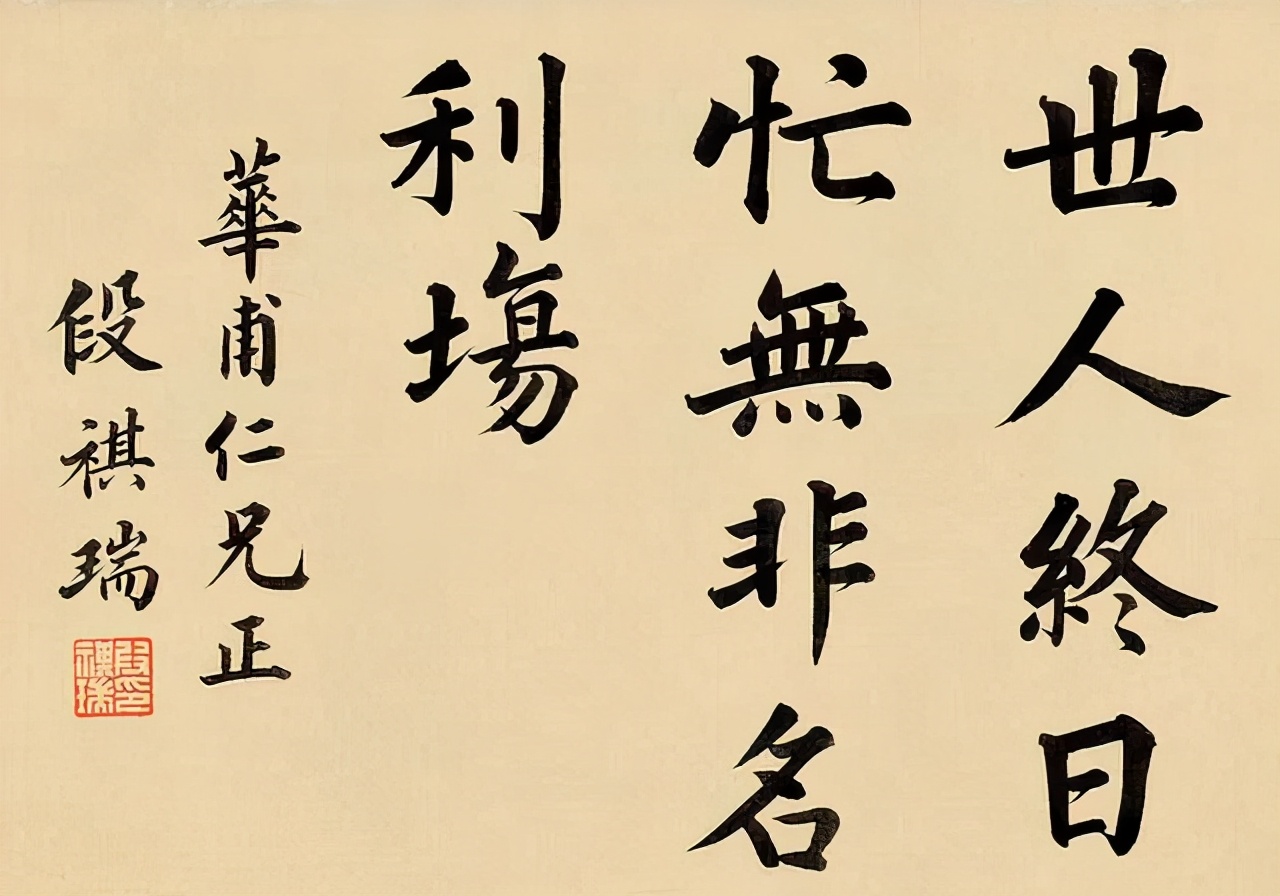 世人終日
忙無非名
利場
華甫仁兄正
段祺瑞
段祺瑞印